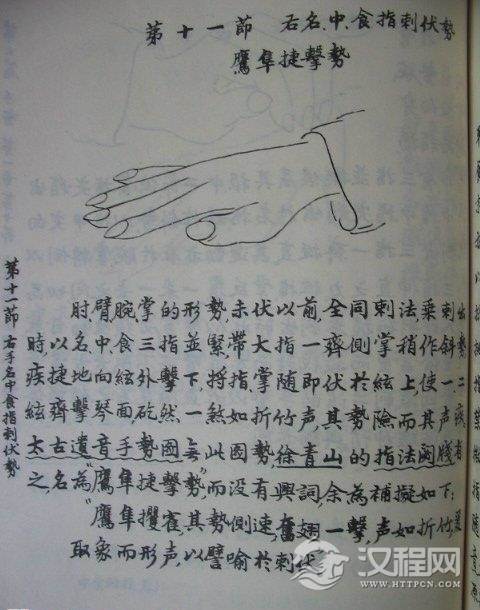 第十一節 右名、中、食指刺伏勢
鷹隼捷擊勢
第十一節 右手名中食指刺伏勢
肘、臂、腕、掌的形勢,未伏以前,全同刺法,乘刺出
時,以名、中、食三指並緊,帶大指一齊側掌稍作斜勢
疾捷地向絃外擊下,將指、掌隨即伏於絃上,使一二
絃齊擊琴面,砉然一煞如折竹声,其勢險而其声疾
太古遺音手勢圖無此圖勢,徐青山的指法闕牋有
之,名為“鷹隼捷擊勢”,而没有興詞,余為補擬如下:
“鷹隼攫雀其勢側速,奮翅一擊,声如折竹,
取象而形声,以譬喻於刺伏
汉程网
HTTP://WWW.HTTPCN.COM